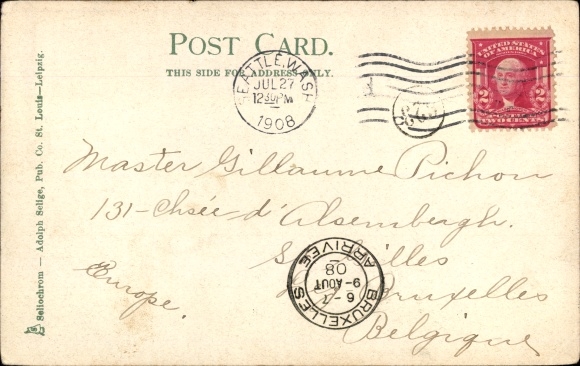 POST CARD.
THIS SIDE FOR ADDRESS ONLY.
SEATTLE, WASH.
JUL 27
12 30 PM
1908
UNITED STATES OF AMERICA
2 2
POSTAGE
TWO CENTS
Master Gillaume Pichon
131-Chsée d'Alsembergh.
Bruxelles
Europe.
Belgique
BRUXELLES
6-7
9-AOUT
08
ARRIVEE
Seliochrom — Adolph Selige, Pub. Co. St. Louis—Leipzig.